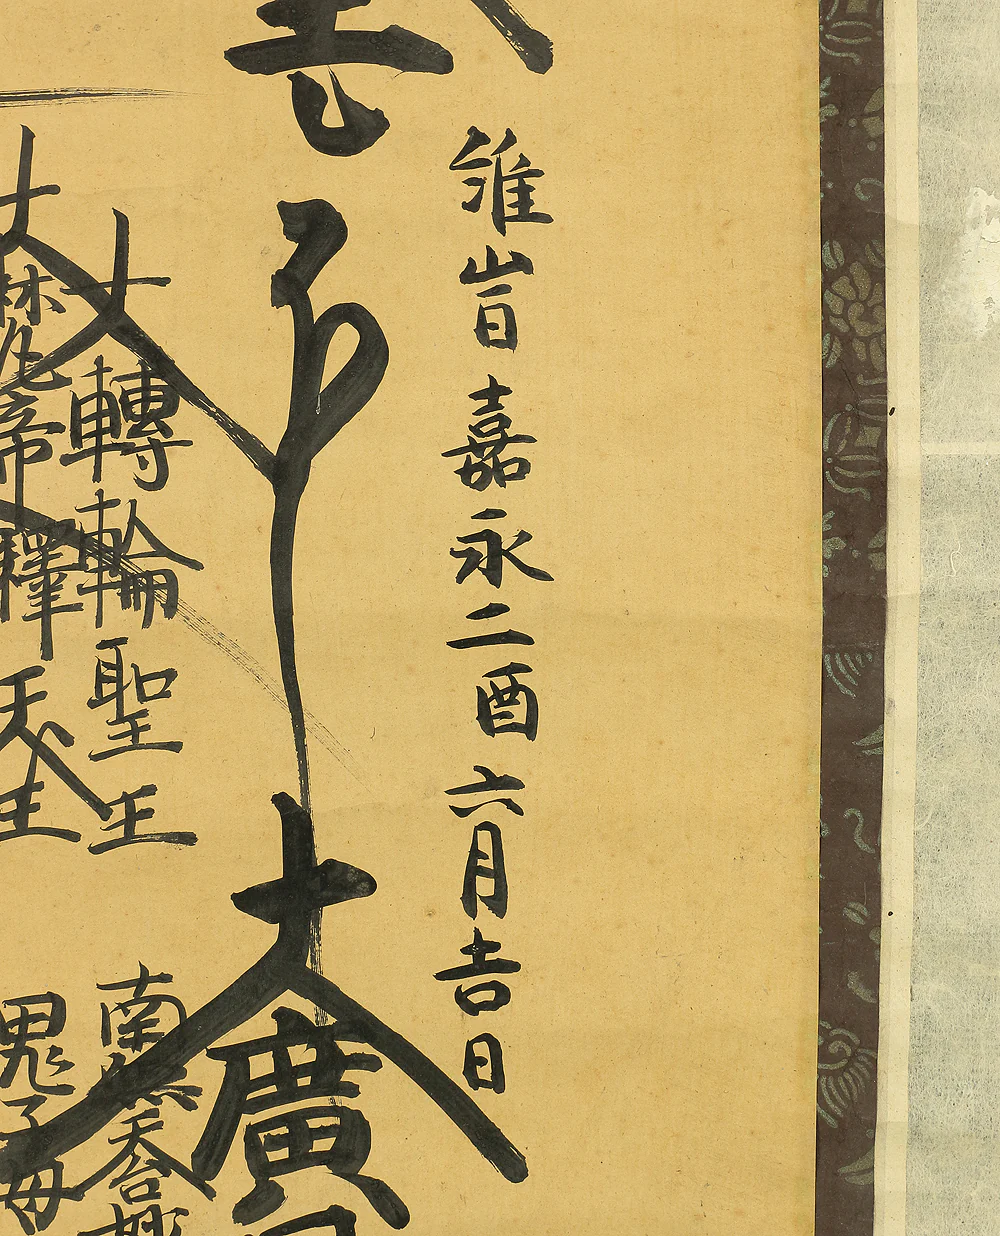 維旹嘉永二酉六月吉日
大廣
大轉輪聖王
南無天台妙
帝釋天王
鬼子母